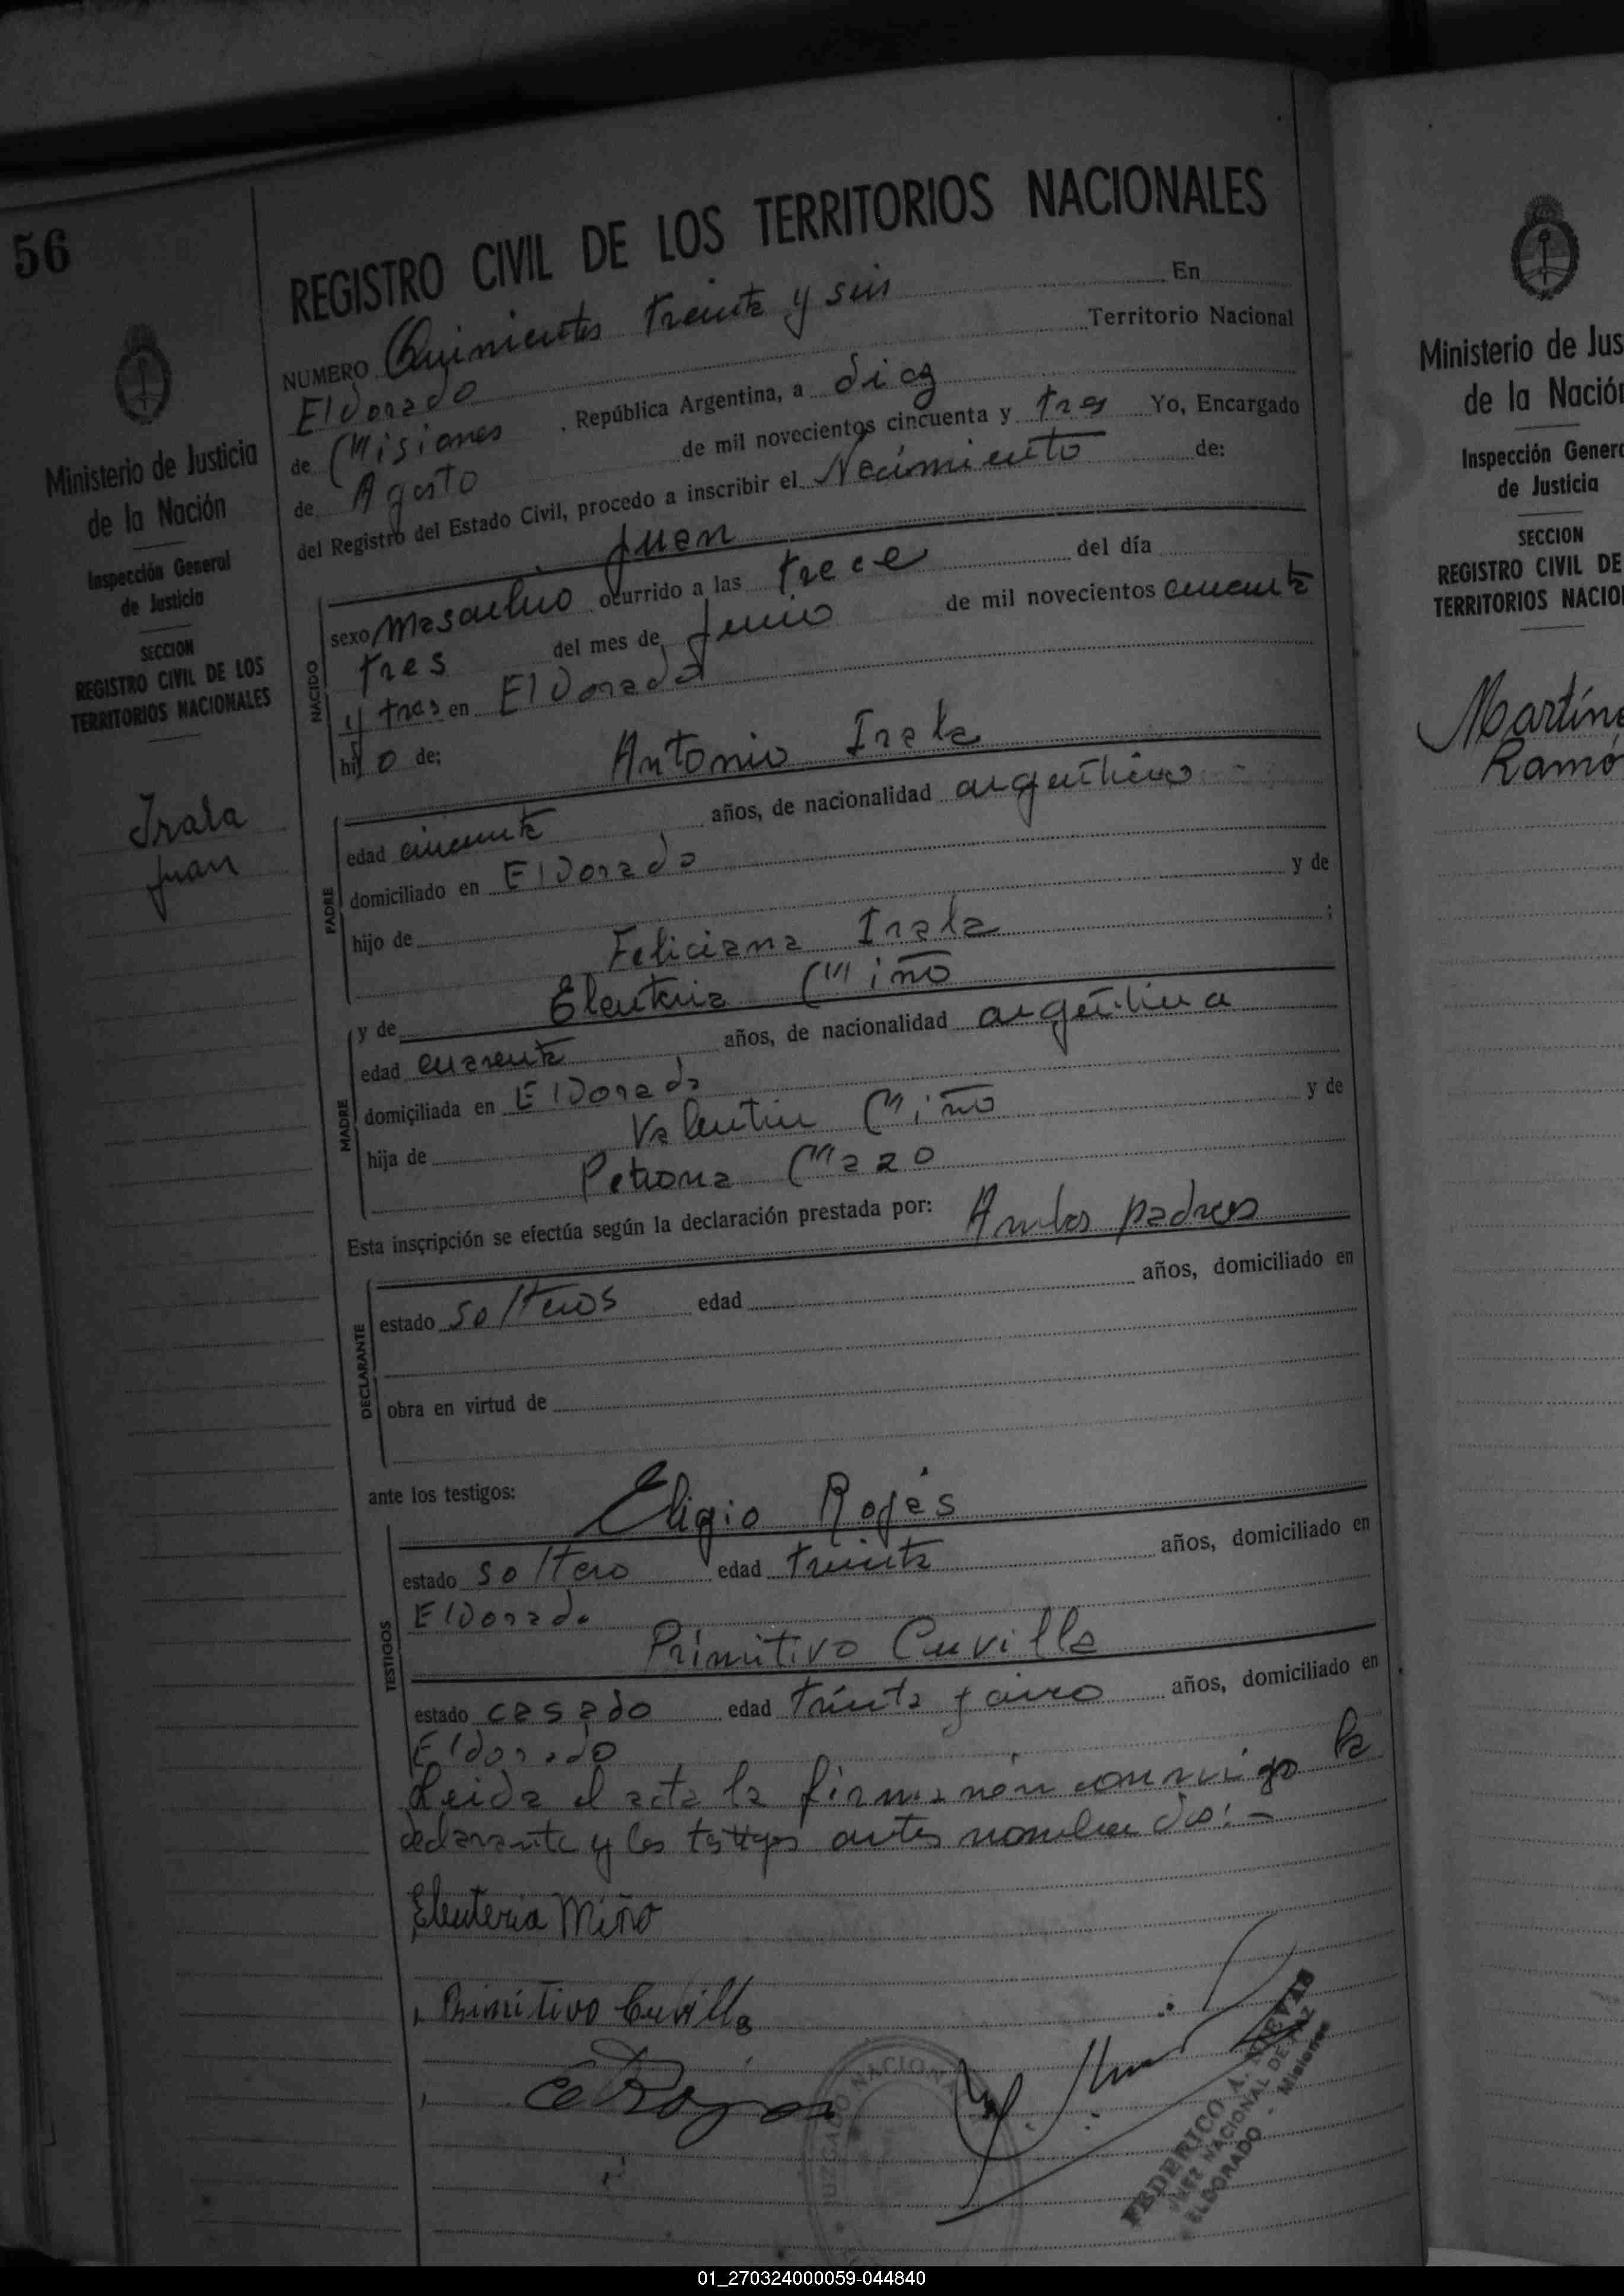 56
Ministerio de Justicia
de la Nación
Inspección General
de Justicia
SECCION
REGISTRO CIVIL DE LOS
TERRITORIOS NACIONALES
Irala
Juan
REGISTRO CIVIL DE LOS TERRITORIOS NACIONALES
NUMERO Quinientos treinta y seis En
Eldorado Territorio Nacional
de Misiones , República Argentina, a diez
de Agosto de mil novecientos cincuenta y tres Yo, Encargado
del Registro del Estado Civil, procedo a inscribir el Nacimiento de:
Juan
NACIDO
sexo masculino ocurrido a las trece del día
tres del mes de Junio de mil novecientos cincuenta
y tres en Eldorado
hijo de: Antonio Irala
PADRE
edad cincuenta años, de nacionalidad argentino
domiciliado en Eldorado
hijo de y de
Feliciana Irala ;
y de Eleuteria Miño
MADRE
edad cuarenta años, de nacionalidad argentina
domiciliada en Eldorado
hija de Valentin Miño y de
Petrona Mazo
Esta inscripción se efectúa según la declaración prestada por: Ambos padres
DECLARANTE
estado solteros edad años, domiciliado en
obra en virtud de
ante los testigos: Eligio Rojas
TESTIGOS
estado soltero edad treinta años, domiciliado en
Eldorado
Primitivo Cuvilla
estado casado edad treinta y cinco años, domiciliado en
Eldorado
Leida el acta la firmaron conmigo la
declarante y los testigos antes nombrados:-
Eleuteria Miño
Primitivo Cuvilla
E Rojas
JUZGADO NACIONAL
FEDERICO A. NIEVAS
JUEZ NACIONAL DE PAZ
ELDORADO - Misiones
Ministerio de Jus
de la Nació
Inspección Genera
de Justicia
SECCION
REGISTRO CIVIL DE
TERRITORIOS NACIO
Martíne
Ramó
01_270324000059-044840